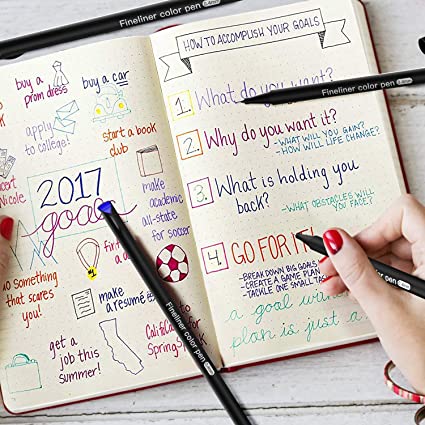 Fineliner color pen
buy a
prom dress
buy a car
apply
to college!
start a book
club
Nicole
2017
goals
make
academic
all-state
for soccer
Do something
that scares
you!
make
a resumé
get a
job this
summer!
Spring
HOW TO ACCOMPLISH YOUR GOALS
Fineliner color pen
1. What do you want?
2. Why do you want it?
-WHAT WILL YOU GAIN?
-HOW WILL LIFE CHANGE?
3. What is holding you
back?
-WHAT OBSTACLES WILL
YOU FACE?
4. GO FOR IT!
-BREAK DOWN BIG GOALS
-CREATE A GAME PLAN
-TACKLE ONE SMALL
a goal
plan is just a
Fineliner color pen
Fineliner color pen